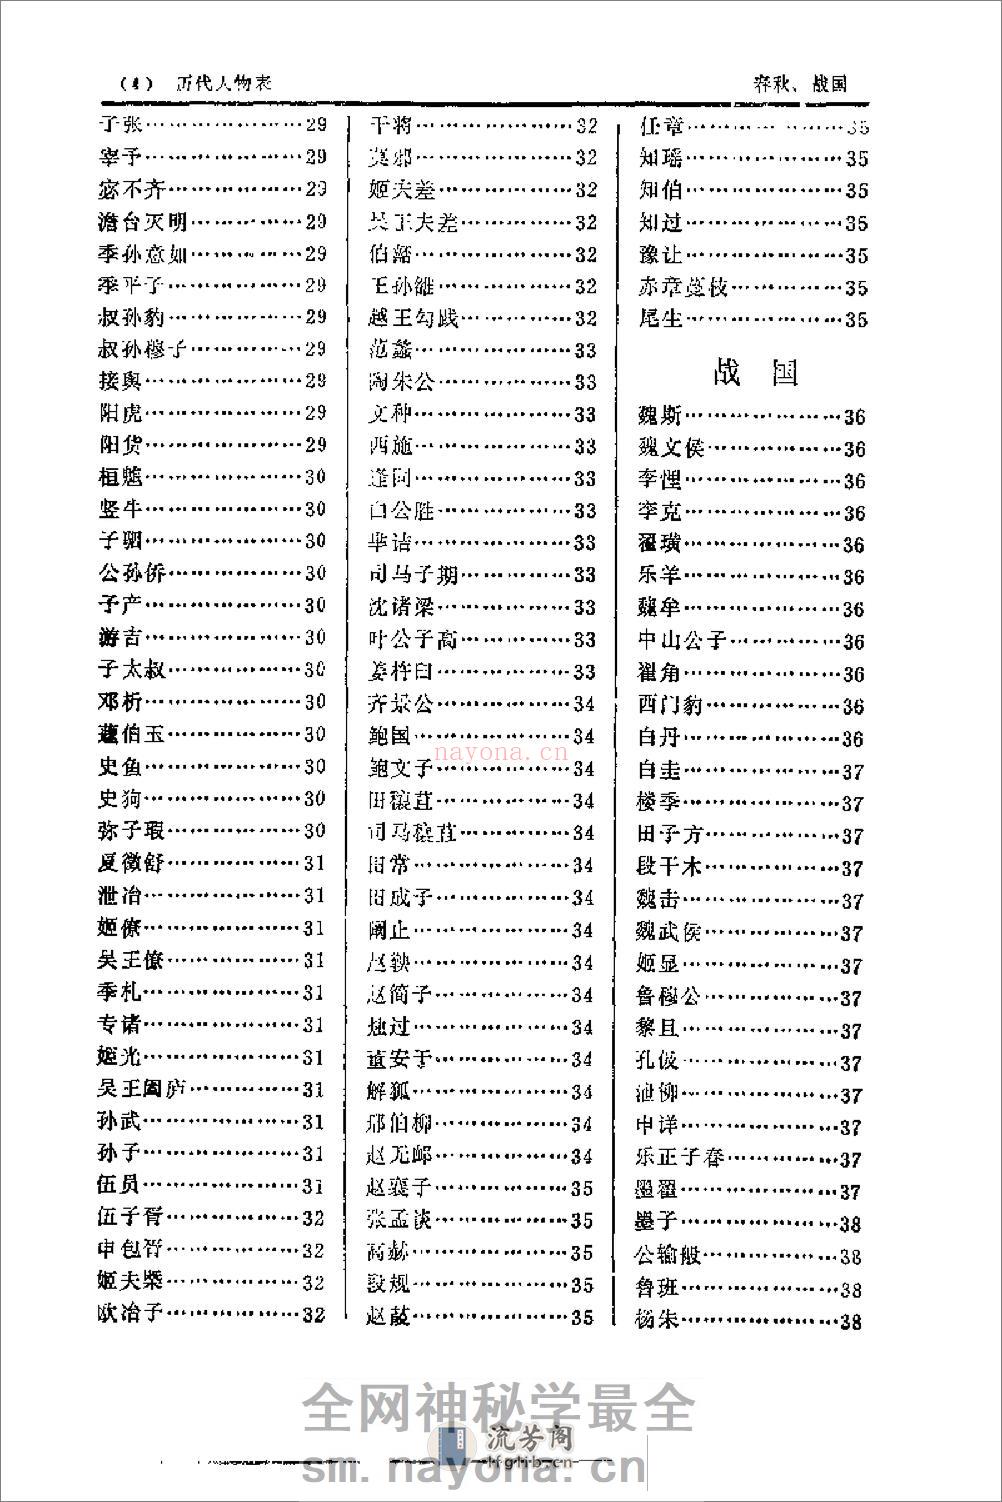 (4) 历代人物表
春秋、战国
子张……29
宰予……29
宓不齐……29
澹台灭明……29
季孙意如……29
季平子……29
叔孙豹……29
叔孙穆子……29
接舆……29
阳虎……29
阳货……29
桓魋……30
竖牛……30
子驷……30
公孙侨……30
子产……30
游吉……30
子太叔……30
邓析……30
蘧伯玉……30
史鱼……30
史狗……30
弥子瑕……30
夏徵舒……31
泄冶……31
姬僚……31
吴王僚……31
季札……31
专诸……31
姬光……31
吴王阖庐……31
孙武……31
孙子……31
伍员……31
伍子胥……32
申包胥……32
姬夫槩……32
欧冶子……32
干将……32
莫邪……32
姬夫差……32
吴王夫差……32
伯嚭……32
王孙雒……32
越王勾践……32
范蠡……33
陶朱公……33
文种……33
西施……33
逢同……33
白公胜……33
毕诘……33
司马子期……33
沈诸梁……33
叶公子高……33
姜杵臼……33
齐景公……34
鲍国……34
鲍文子……34
田穰苴……34
司马穰苴……34
田常……34
田成子……34
阚止……34
赵鞅……34
赵简子……34
烛过……34
董安于……34
解狐……34
邢伯柳……34
赵无邮……34
赵襄子……35
张孟谈……35
高赫……35
段规……35
赵葭……35
任章……35
知瑶……35
知伯……35
知过……35
豫让……35
赤章蔓枝……35
尾生……35
战 国
魏斯……36
魏文侯……36
李悝……36
李克……36
翟璜……36
乐羊……36
魏牟……36
中山公子……36
翟角……36
西门豹……36
白丹……36
白圭……37
楼季……37
田子方……37
段干木……37
魏击……37
魏武侯……37
姬显……37
鲁穆公……37
黎且……37
孔伋……37
泄柳……37
申详……37
乐正子春……37
墨翟……37
墨子……38
公输般……38
鲁班……38
杨朱……38
nayona.cn
全网神秘学最全
流芳阁
lfglib.cn
sm.nayona.cn